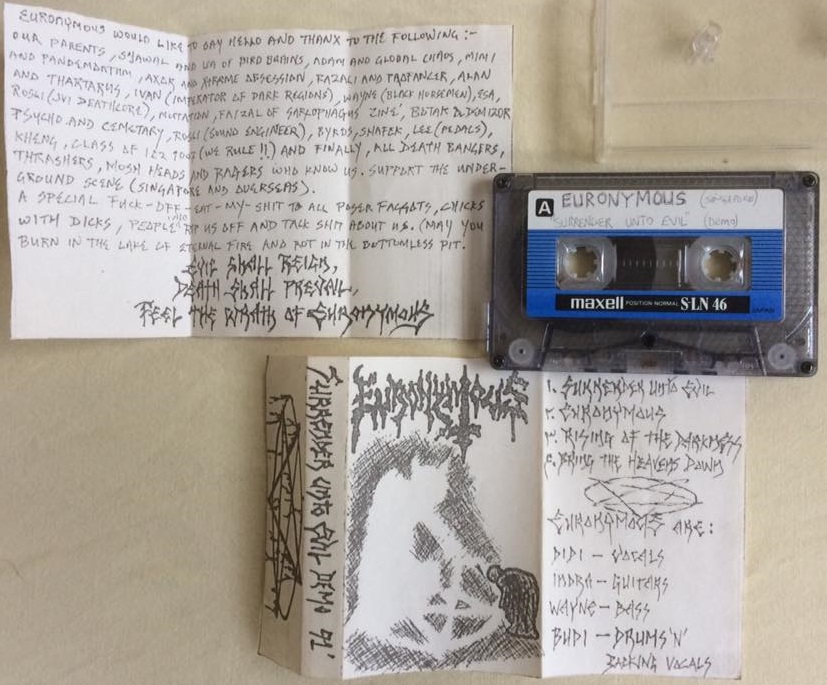 EURONYMOUS WOULD LIKE TO SAY HELLO AND THANX TO THE FOLLOWING :-
OUR PARENTS, SYAWAL AND UA OF BIRD BRAINS, ADAM AND GLOBAL CHAOS, MIMI
AND PANDEMONIUM, AXOR AND XTREME OBSESSION, RAZALI AND PROFANCER, ALAN
AND THARTARUS, IVAN (IMPERATOR OF DARK REGIONS), WAYNE (BLACK HORSEMEN), ESA,
ROSLI (JVI DEATHCORE), MUTATION, FAIZAL OF SARCOPHAGUS 'ZINE', BOTAK & DEMIZOR
PSYCHO AND CEMETARY, ROSLI (SOUND ENGINEER), BYRDS, SHAFEK, LEE (PEDALS),
KHENG, CLASS OF 1E2 (WE RULE !!) AND FINALLY, ALL DEATH BANGERS,
THRASHERS, MOSH HEADS AND RAGERS WHO KNOW US. SUPPORT THE UNDER-
GROUND SCENE (SINGAPORE AND OVERSEAS).
A SPECIAL FUCK-OFF-EAT-MY-SHIT TO ALL POSER FAGGOTS, CHICKS
WITH DICKS, PEOPLE WHO RIP US OFF AND TALK SHIT ABOUT US. (MAY YOU
BURN IN THE LAKE OF ETERNAL FIRE AND ROT IN THE BOTTOMLESS PIT.
EVIL SHALL REIGN,
DEATH SHALL PREVAIL,
FEEL THE WRATH OF EURONYMOUS
A EURONYMOUS (SINGAPORE)
"SURRENDER UNTO EVIL" (DEMO)
maxell POSITION NORMAL S·LN 46 JAPAN
SURRENDER UNTO EVIL DEMO '91
EURONYMOUS
1. SURRENDER UNTO EVIL
٢. EURONYMOUS
٣. RISING OF THE DARKNESS
٤. BRING THE HEAVENS DOWN
EURONYMOUS ARE:
DIDI – VOCALS
INDRA – GUITARS
WAYNE – BASS
BUDI – DRUMS 'N'
BACKING VOCALS